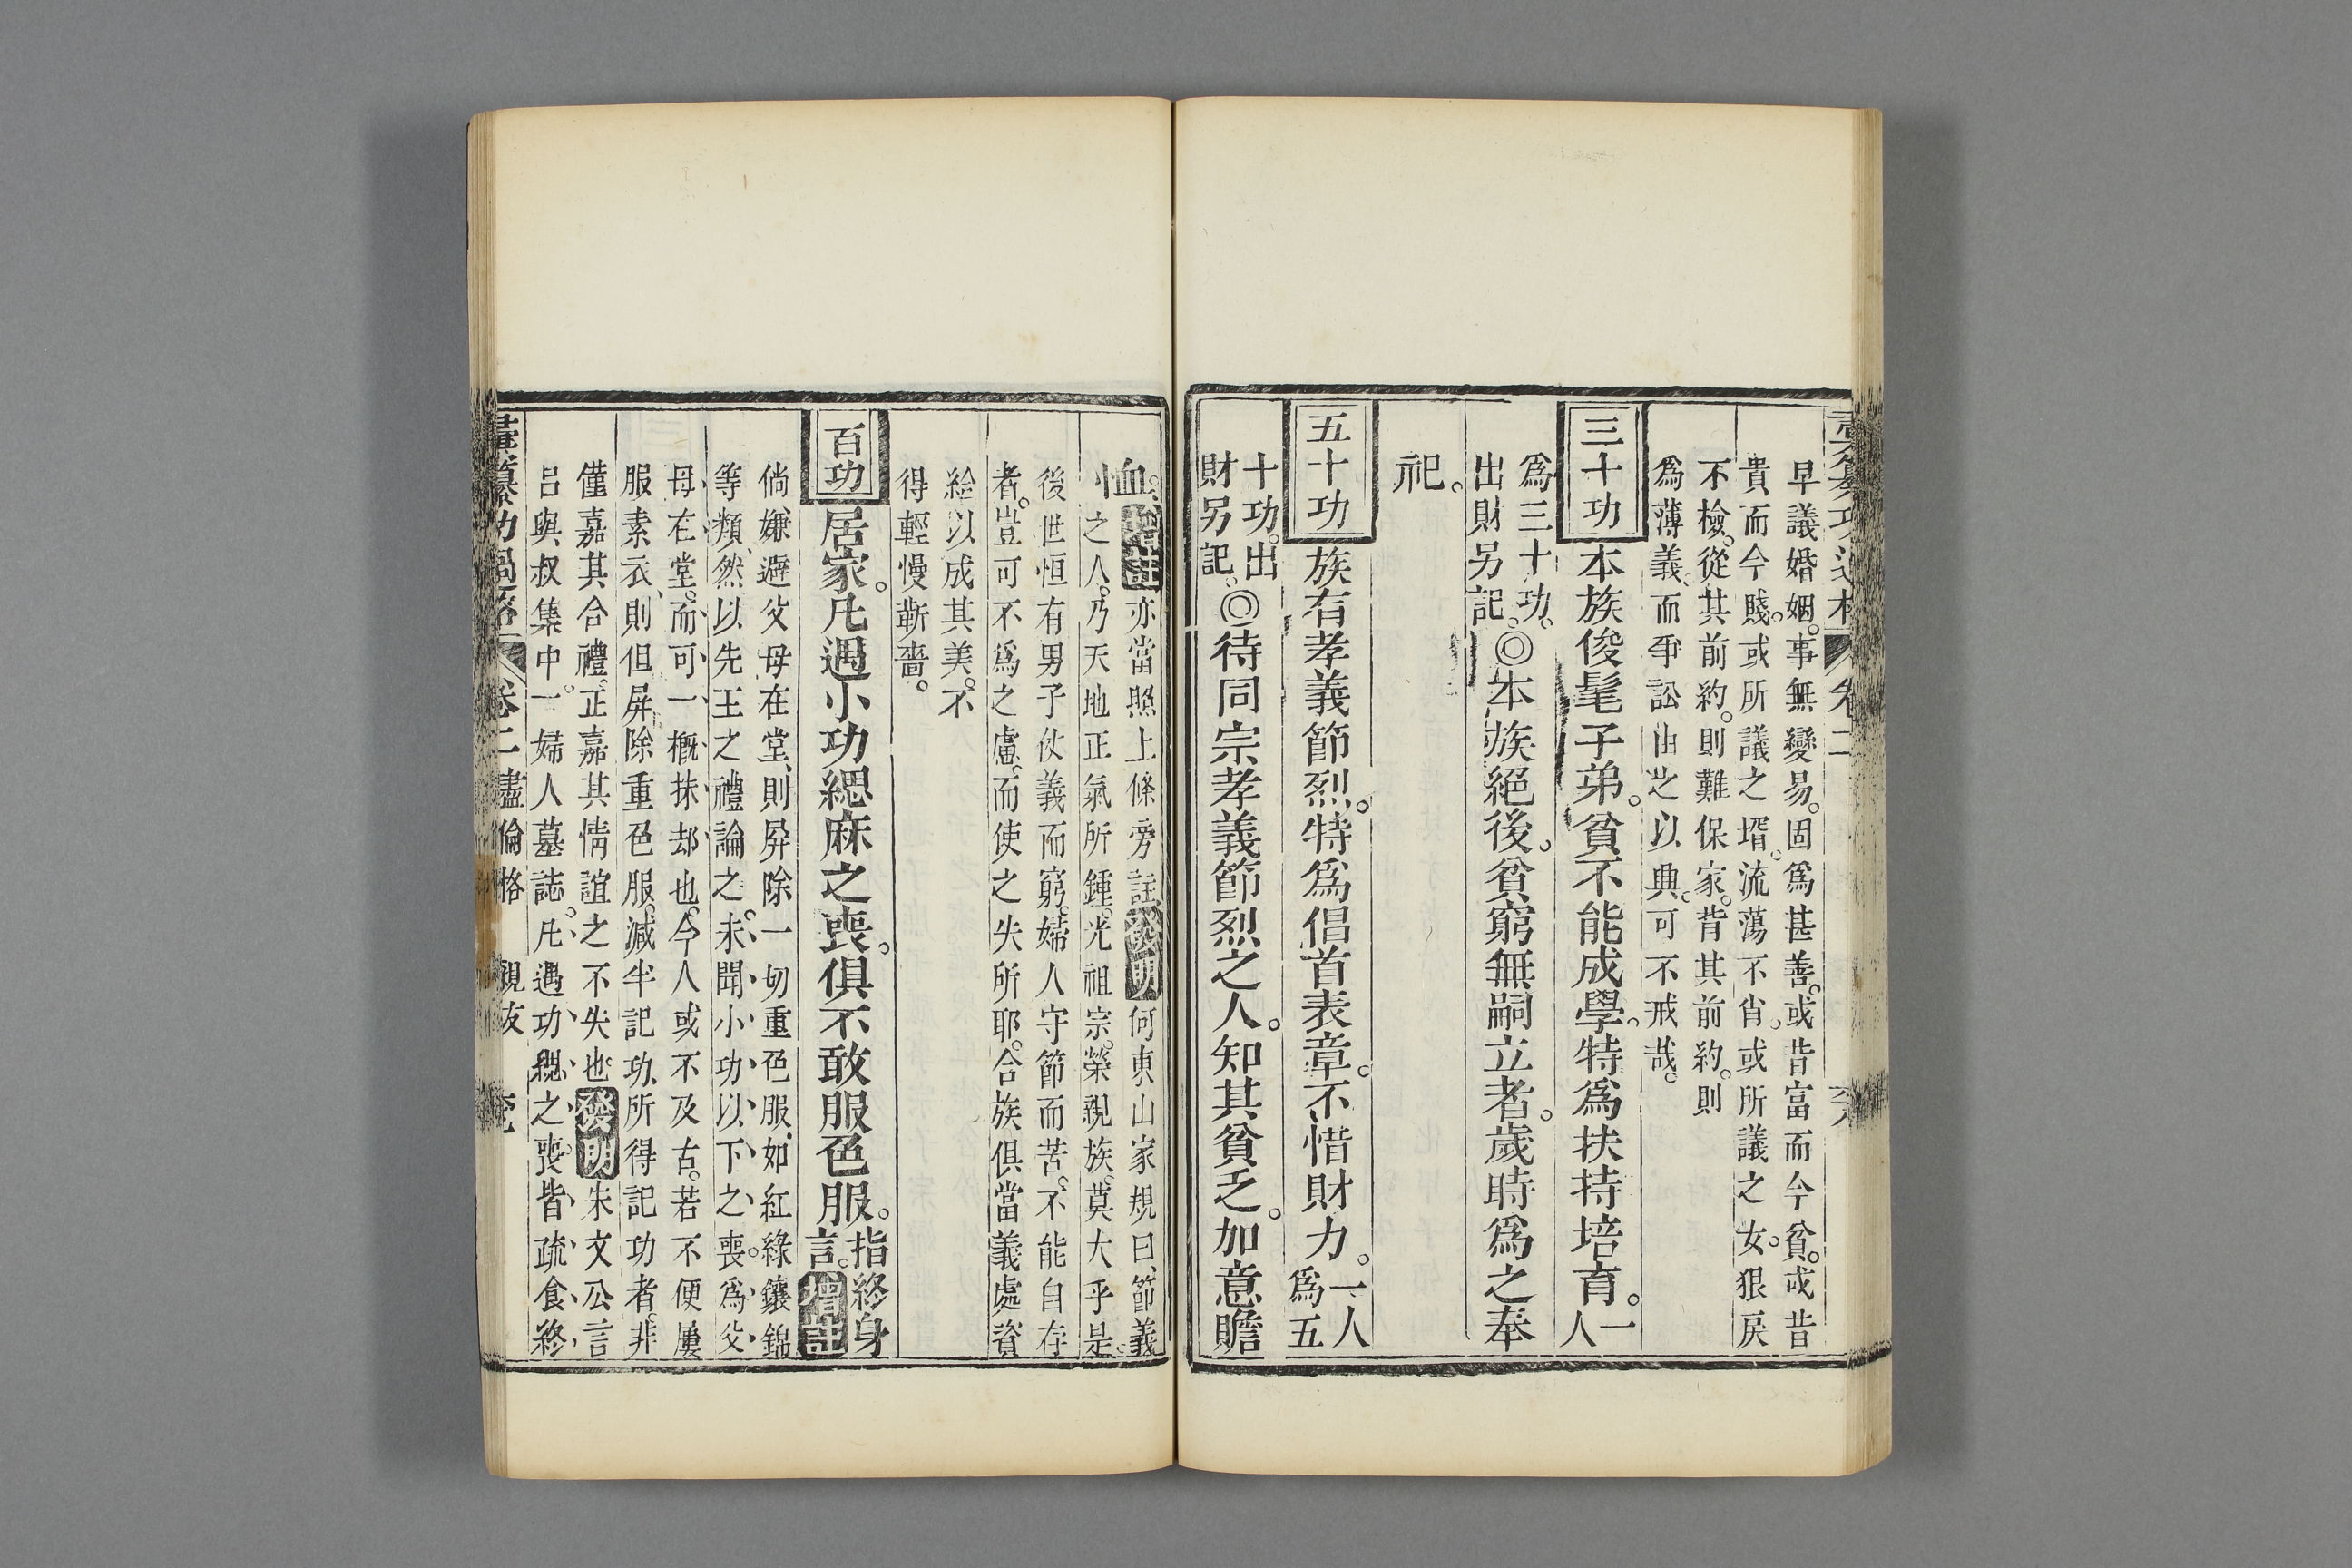 早議婚姻。事無變易。固爲甚善。或昔富而今貧。或昔
貴而今賤。或所議之壻。流蕩不肖。或所議之女。狠戾
不檢。從其前約。則難保家。背其前約。則
爲薄義。而爭訟由之以興。可不戒哉。
三十功 本族俊髦子弟。貧不能成學。特爲扶持培育。一人
爲三十功。
出財另記。◎本族絕後。貧窮無嗣立者。歲時爲之奉
祀。
五十功 族有孝義節烈。特爲倡首表章。不惜財力。一人爲五
十功。出
財另記。◎待同宗孝義節烈之人。知其貧乏。加意贍
恤。增註亦當照上條旁註。發明何東山家規曰、節義
之人。乃天地正氣所鍾。光祖宗。榮親族。莫大乎是。
後世恒有男子仗義而窮。婦人守節而苦。不能自存
者。豈可不爲之慮。而使之失所耶。合族俱當義處資
給以成其美。不
得輕慢靳嗇。
百功 居家。凡遇小功緦麻之喪。俱不敢服色服。指終身言。增註
倘嫌避父母在堂、則屏除一切重色服、如紅綠鑲錦
等類、然以先王之禮論之。未聞小功以下之喪。爲父
母在堂。而可一概抹却也。今人或不及古。若不便屢
服素衣、則但屏除重色服。減半記功、所得記功者。非
僅嘉其合禮。正嘉其情誼之不失也。發明朱文公言
呂與叔集中。一婦人墓誌。凡遇功緦之喪。皆疏食終
卷二 盡倫格 親友